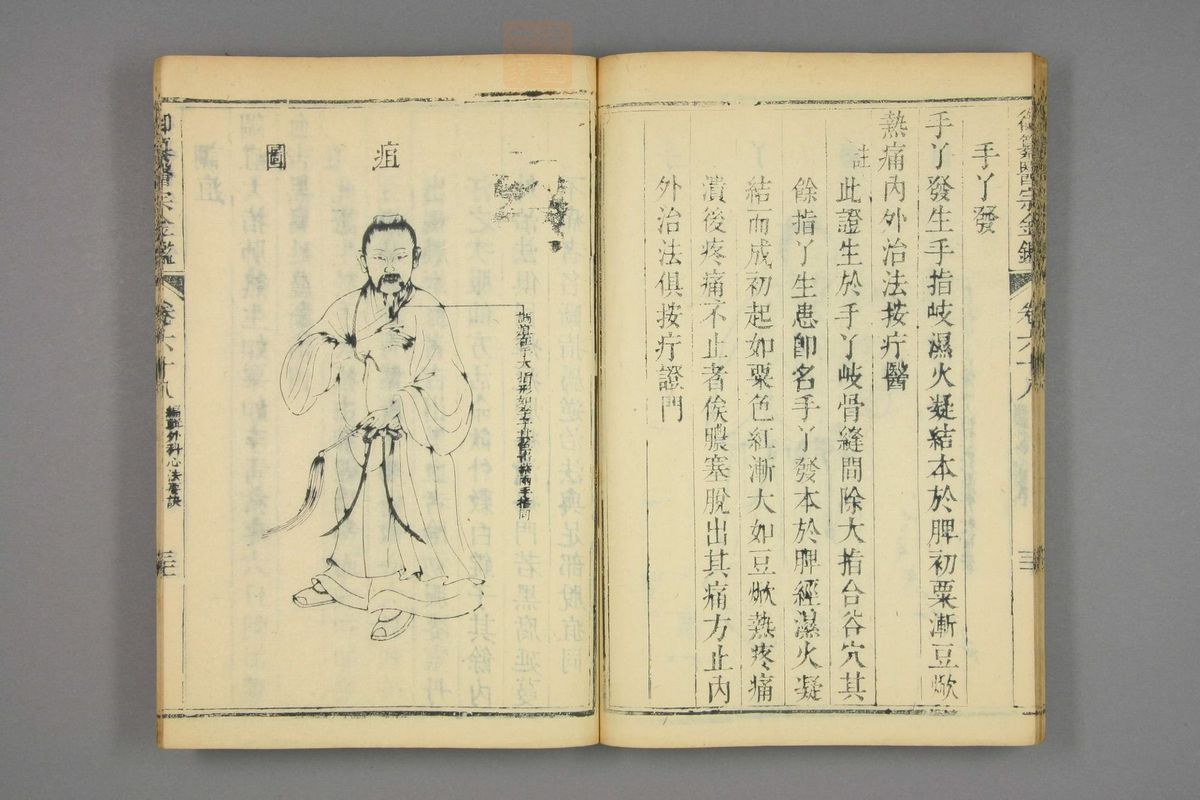 御纂醫宗金鑑
卷六十八
三
手丫發
手丫發生手指岐濕火凝結本於脾初粟漸豆焮
熱痛內外治法按疔醫
註
此證生於手丫岐骨縫間除大指合谷穴其
餘指丫生患卽名手丫發本於脾經濕火凝
結而成初起如粟色紅漸大如豆焮熱疼痛
潰後疼痛不止者俟膿塞脫出其痛方止內
外治法俱按疔證門
疽
圖
生手大指形如
御纂醫宗金鑑
卷六十八
編輯外科心法要訣
三